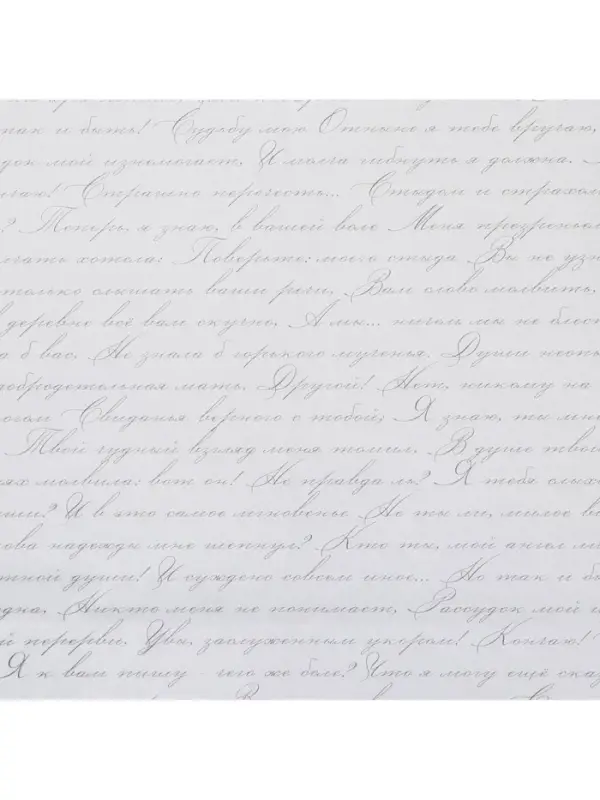 так и быть! Судьбу мою Отныне я тебе вручаю,
док мой изнемогает, И молча гибнуть я должна.
чаю! Страшно перечесть... Стыдом и страхом
? Теперь, я знаю, в вашей воле Меня презреньем
лчать хотела; Поверьте: моего стыда Вы не узн
только слышать ваши речи, Вам слово молвить,
в деревне всё вам скучно, А мы... ничем мы не блест
а б вас, Не знала б горького мученья. Души неопы
добродетельная мать. Другой! Нет, никому на
логом Свиданья верного с тобой; Я знаю, ты мне
Твой чудный взгляд меня томил, В душе твой
лях молвила: вот он! Не правда ль? Я тебя слых
уши? И в это самое мгновенье Не ты ли, милое ви
лова надежды мне шепнул? Кто ты, мой ангел ли
тной души! И суждено совсем иное... Но так и бы
одна, Никто меня не понимает, Рассудок мой и
й перерви, Увы, заслуженным укором! Кончаю!
Я к вам пишу - чего же боле? Что я могу ещё сказ